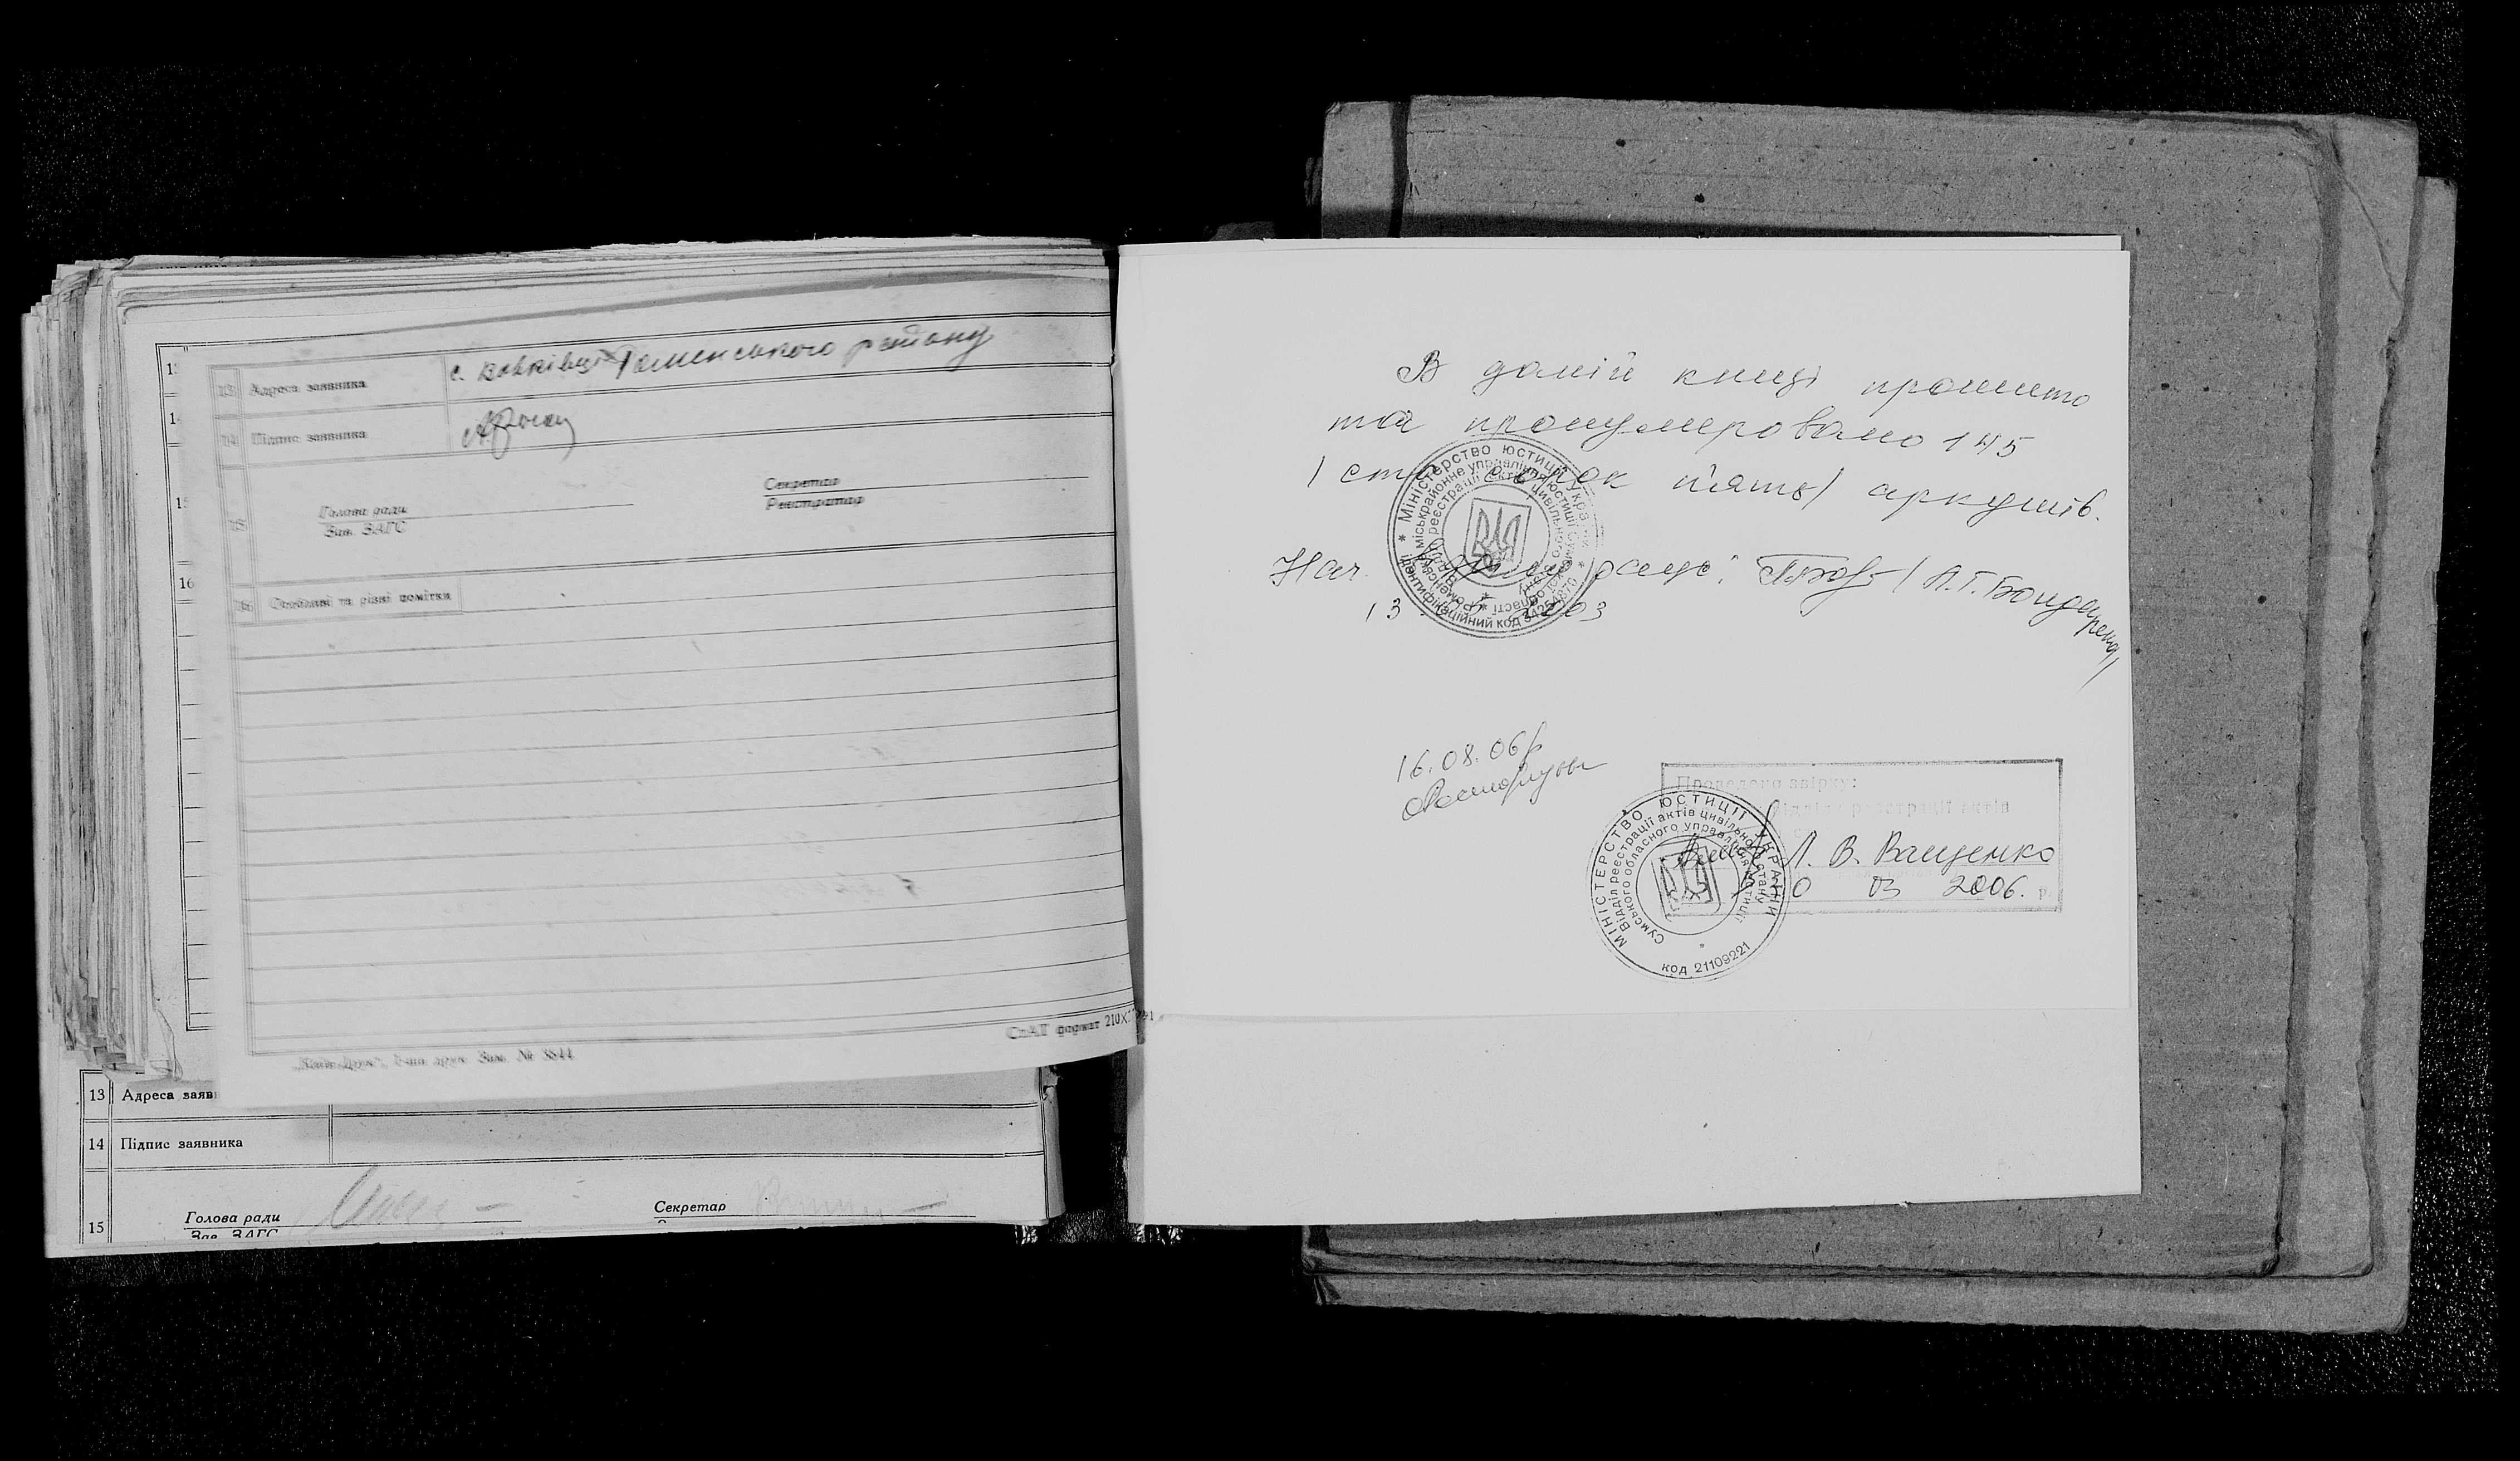 13 Адреса заявника с. Вовківці Роменського району
14 Підпис заявника
15 Голова ради Секретар
Зав. ЗАГС Реєстратор
16 Особливі та різні помітки
"Київ-Друк", Зам. № 3844
СтАП формат 210X
13 Адреса заяв
14 Підпис заявника
15 Голова ради Секретар
Зав. ЗАГС
В даній книзі прошито
та пронумеровано 145
/ сто сорок п'ять / аркушів.
Нач. рацс: / Л. Г. Бондаренко /
13 2003
МІНІСТЕРСТВО ЮСТИЦІЇ УКРАЇНИ
Роменське міськрайонне управління юстиції Сумської області
Відділ реєстрації актів цивільного стану
Ідентифікаційний код 34254870
16.08.06р
Проведено звірку:
Відділу реєстрації актів
Л. В. Ващенко
03 2006. р.
МІНІСТЕРСТВО ЮСТИЦІЇ УКРАЇНИ
Відділ реєстрації актів цивільного стану
Сумського обласного управління юстиції
код 21109221